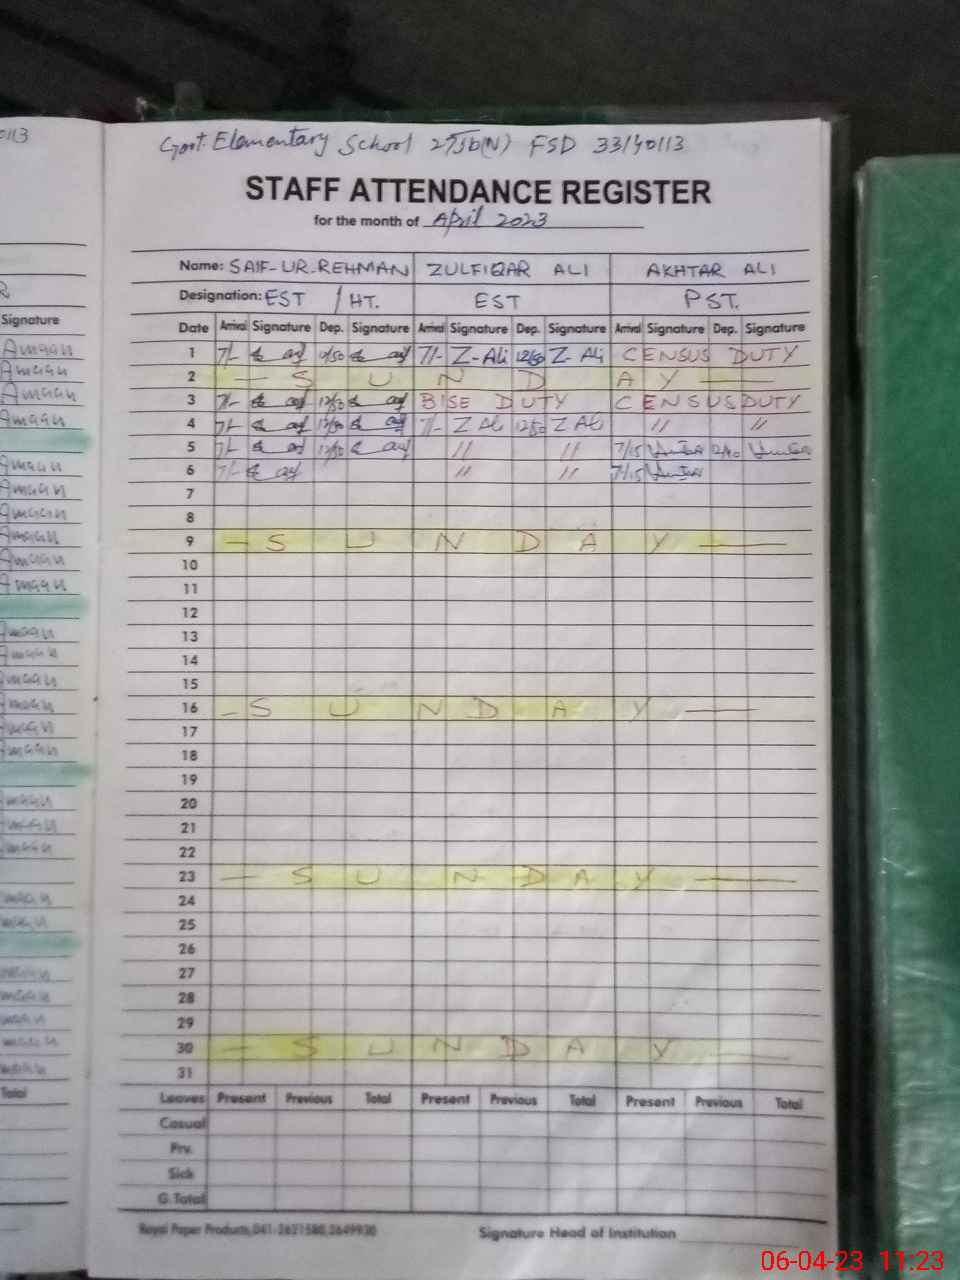 0113
Govt. Elementary School 275b(N) FSD 33140113
STAFF ATTENDANCE REGISTER
for the month of April 2023
Name: SAIF-UR-REHMAN ZULFIQAR ALI AKHTAR ALI
Designation: EST / HT. EST PST.
Signature
Date Arrival Signature Dep. Signature Arrival Signature Dep. Signature Arrival Signature Dep. Signature
Amaan
1 7/- 7/- Z-Ali 12/50 Z-Ali CENSUS DUTY
Amaan
2 — S U N D A Y —
Amaan
3 7/- 12/50 BISE DUTY CENSUS DUTY
Amaan
4 7/- 12/50 7/- Z Ali 12/50 Z Ali // //
5 7/- 12/50 // // 7/15
Amaan
6 7/- // // 7/15
Amaan
7
Amaan
8
Amaan
9 — S U N D A Y —
Amaan
10
Amaan
11
12
Amaan
13
Amaan
14
Amaan
15
Amaan
16 - S U N D A Y —
Amaan
17
Amaan
18
19
Amaan
20
Amaan
21
Amaan
22
23 — S U N D A Y —
Amaan
24
Amaan
25
26
Amaan
27
Amaan
28
Amaan
29
Amaan
30 — S U N D A Y —
Amaan
31
Total
Leaves Present Previous Total Present Previous Total Present Previous Total
Casual
Prv.
Sick
G. Total
Royal Paper Products, 041-2621580, 2649930 Signature Head of Institution
06-04-23 11:23